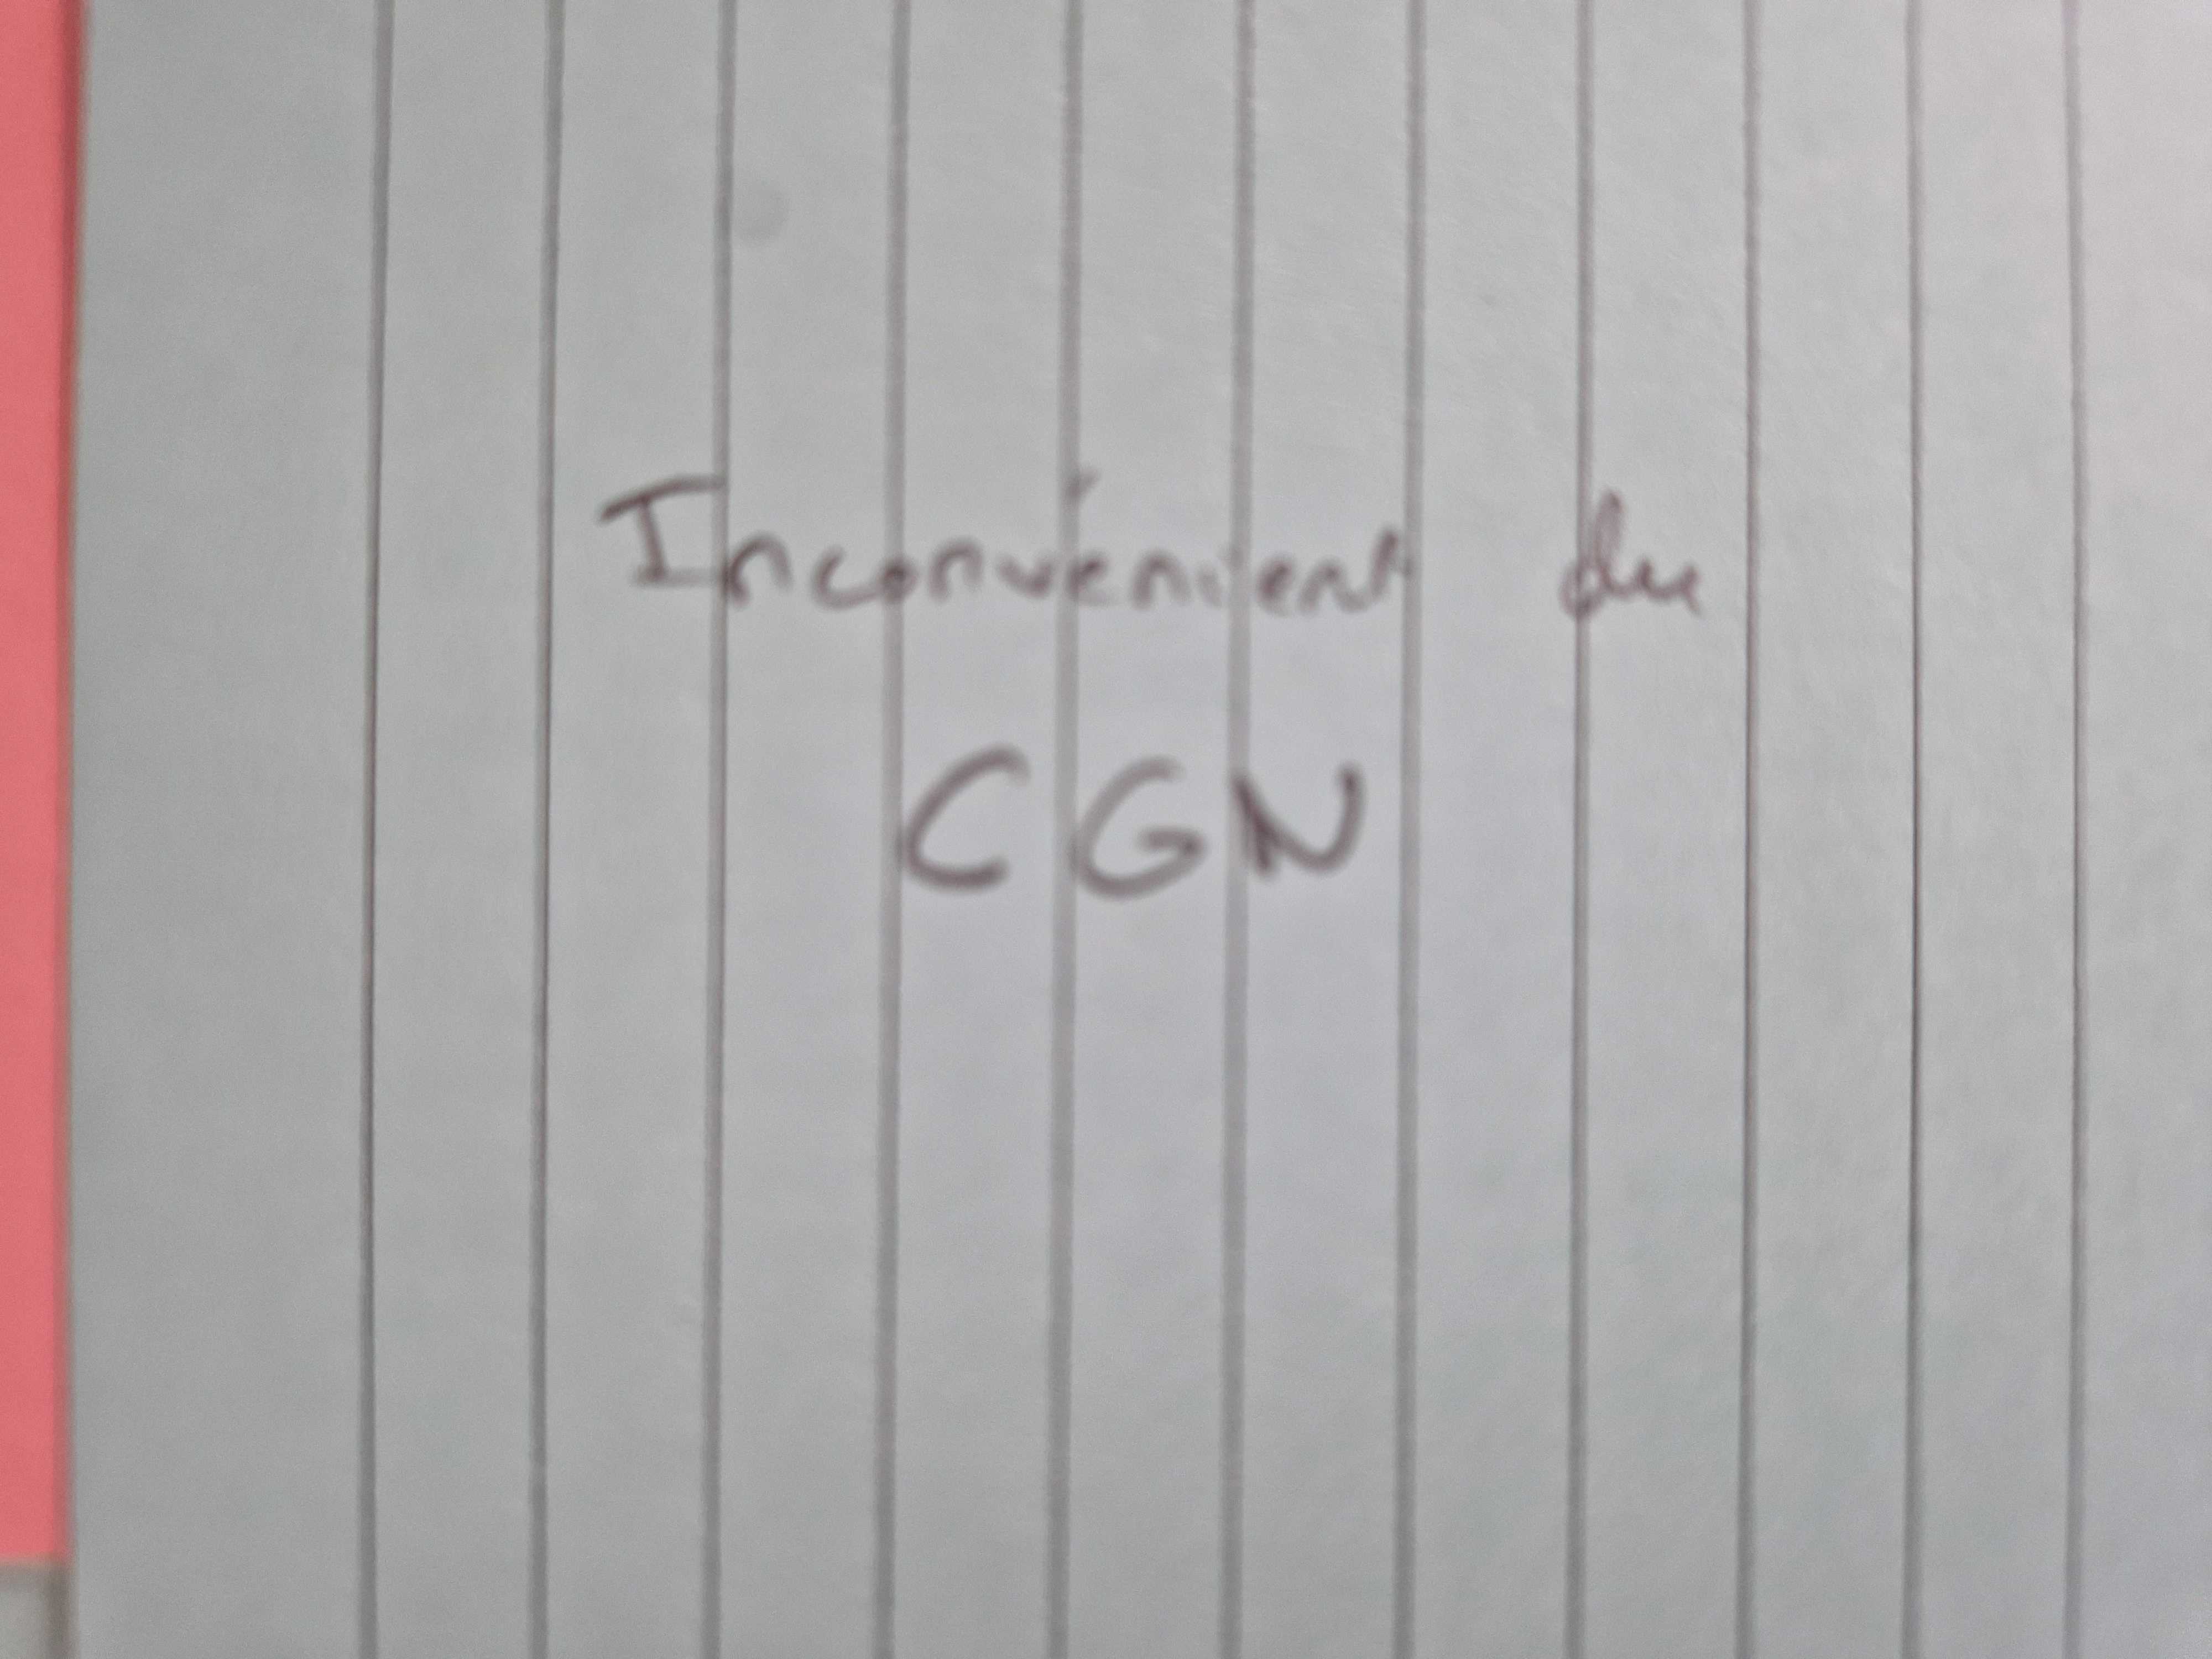 Inconvénient du
CGN